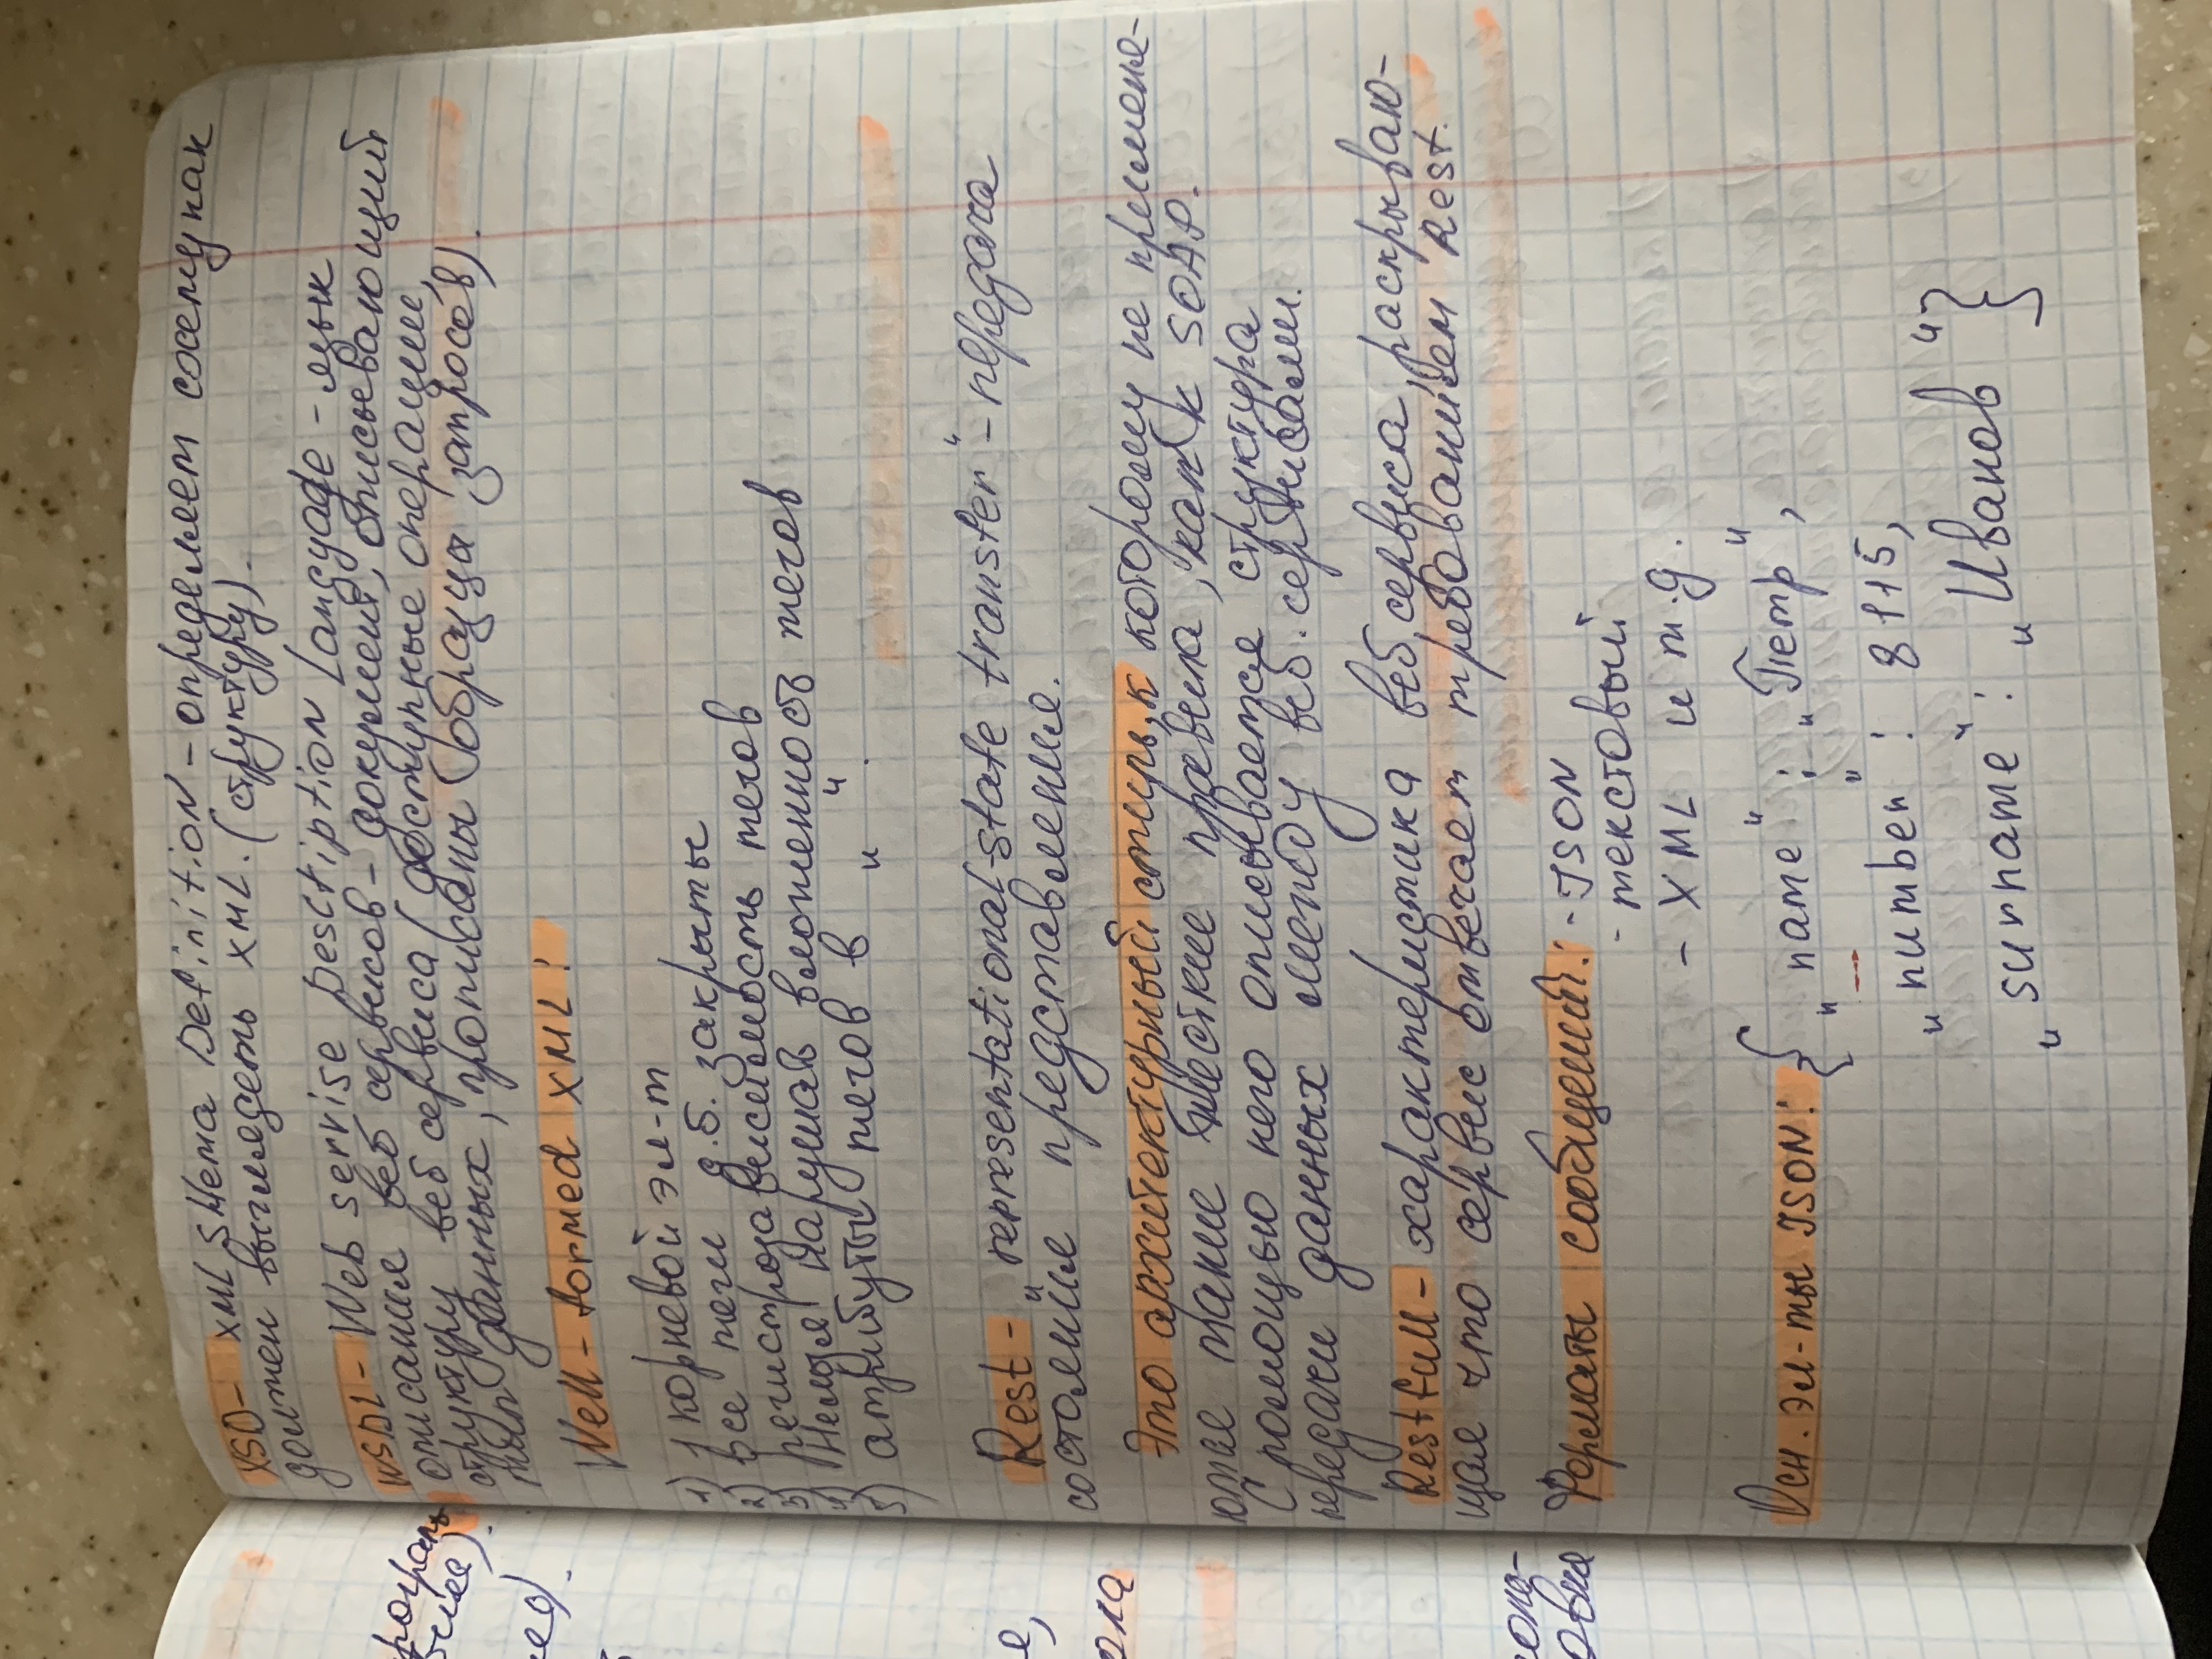 XSD- XML SHema DefinitioN – определяет схему как
должен выглядеть XML. (структуру).
WSDL- Web servise Description Langyage – язык
описания веб сервисов – документ, описывающий
структуру веб сервиса (доступные операции,
тип данных, прописаны образцы запросов).
Well-formed XML:
1) 1 корневой эл-т
2) все теги д.б. закрыты
3) регистрозависимость тегов
4) Нельзя нарушать вложенность тегов
5) атрибуты тегов в „ “.
Rest- „representational-state transfer“ – передача
состояния представления.
Это архитектурный стиль, к которому не применя-
ются такие жесткие правила, как к SOAP.
С помощью него описывается структура
передачи данных между веб. сервисами.
Restfull- характеристика веб.сервиса, раскрываю-
щая что сервис отвечает требованиям Rest.
Форматы сообщений: - JSON
- текстовый
- XML и т.д.
Осн. эл-ты JSON: { „name“ : „Петр“,
„number“ : 8115,
„surname“ : „Иванов“}
ола
овня